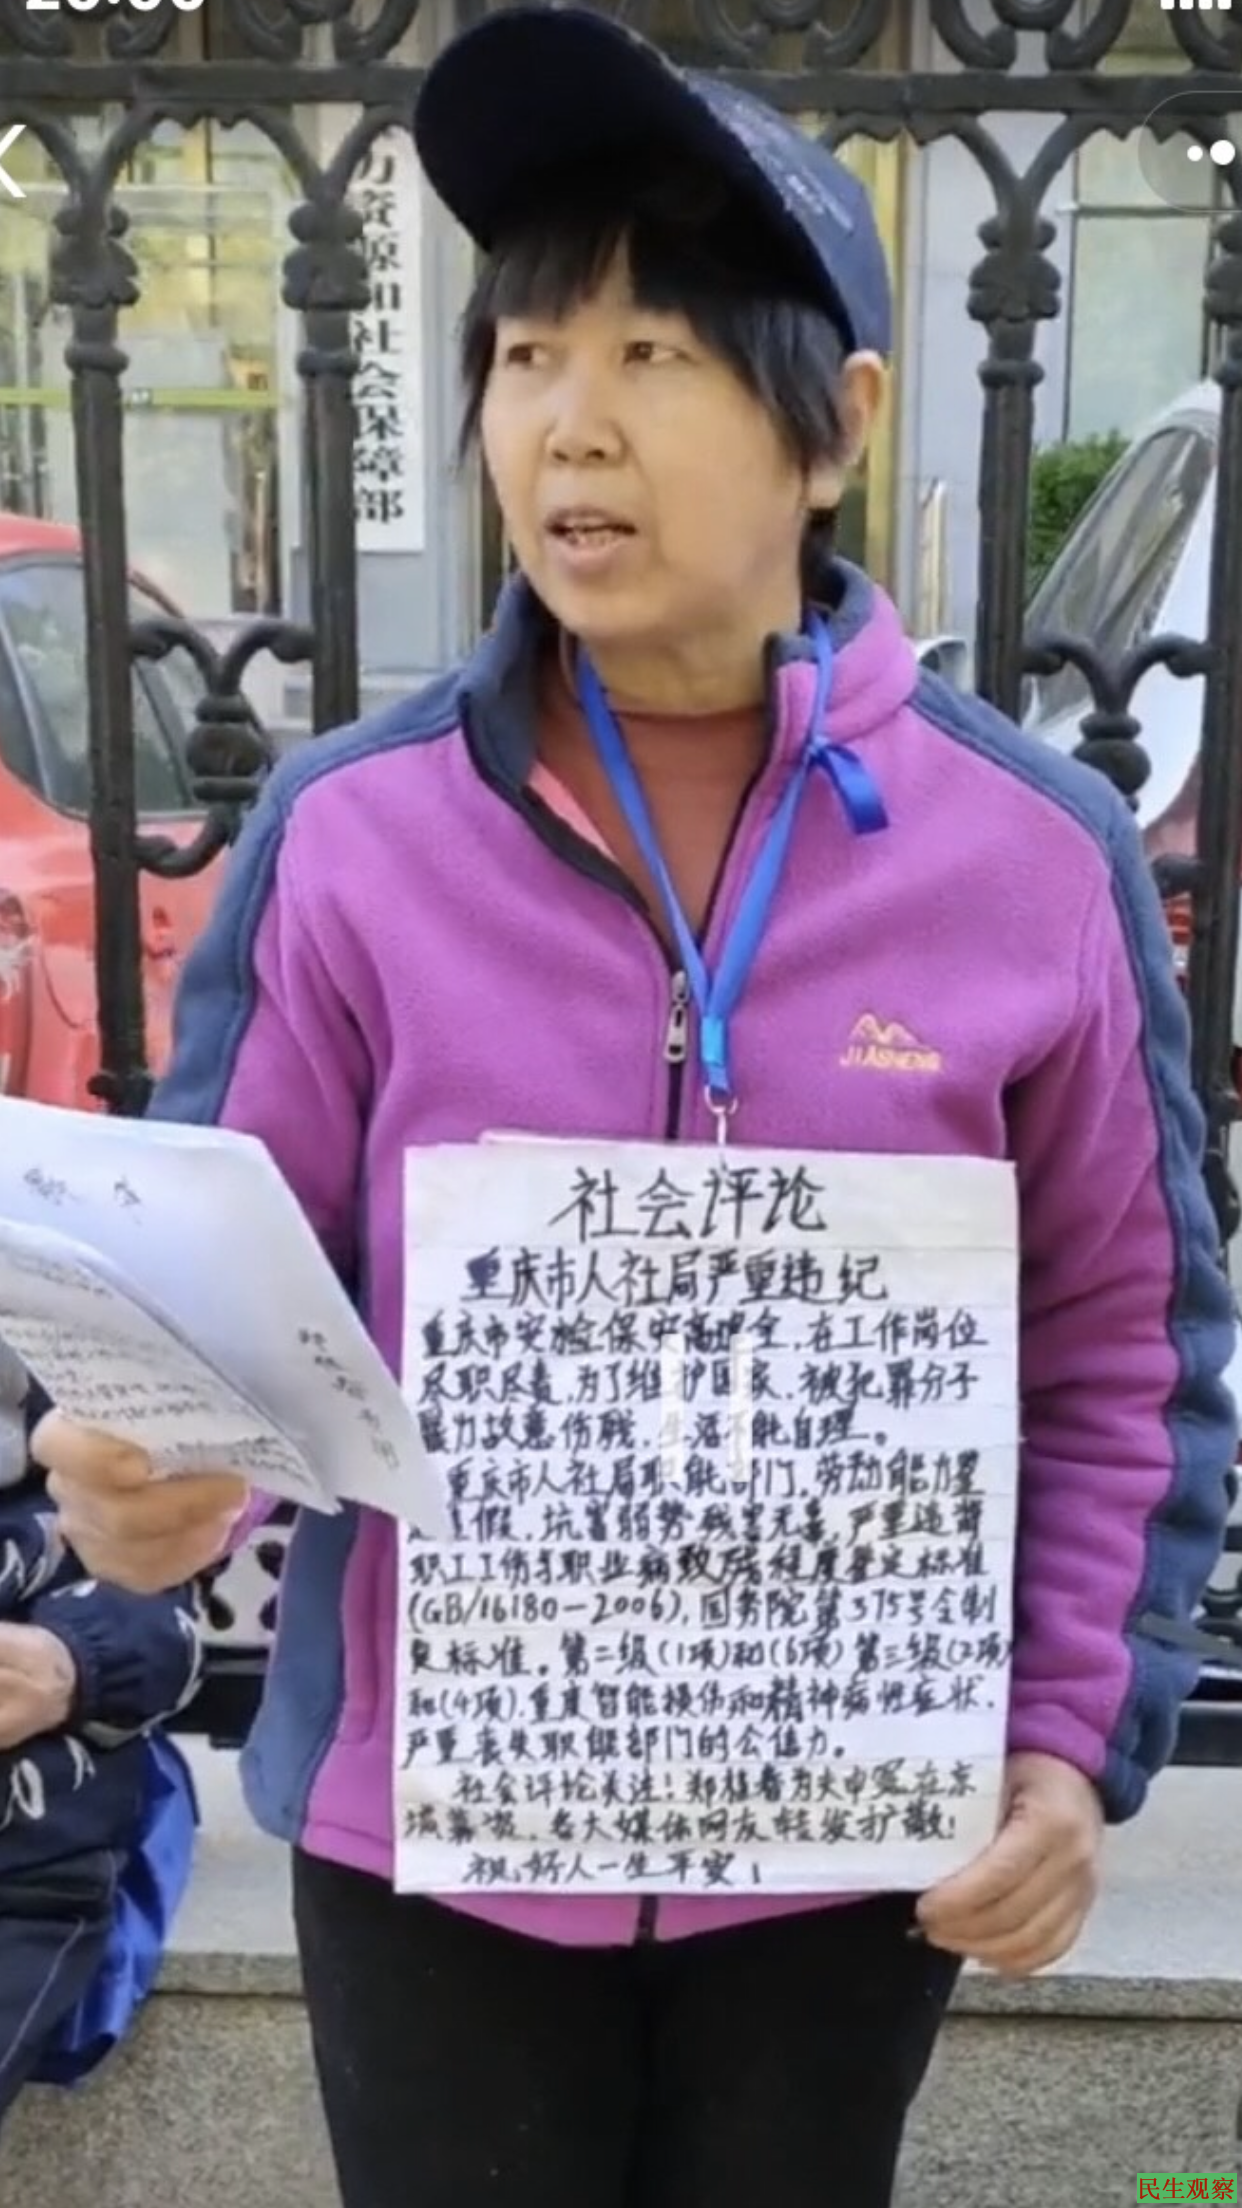 力资源和社会保障部
JIASHENG
社会评论
重庆市人社局严重违纪
重庆市安检保安高增全，在工作岗位
尽职尽责，为了维护国家，被犯罪分子
暴力故意伤残，生活不能自理。
重庆市人社局职能部门，劳动能力鉴
假，坑害弱势残害无辜，严重违背
职工工伤与职业病致残程度鉴定标准
(GB/16180—2006)，国务院第375号令制
标准。第二级(1项)和(6项)第三级(2项)
和(4项)，重度智能损伤和精神病性症状，
严重丧失职能部门的公信力。
社会评论关注！郑桂春为夫申冤在京
募资，各大媒体网友转发扩散！
祝：好人一生平安！
民生观察